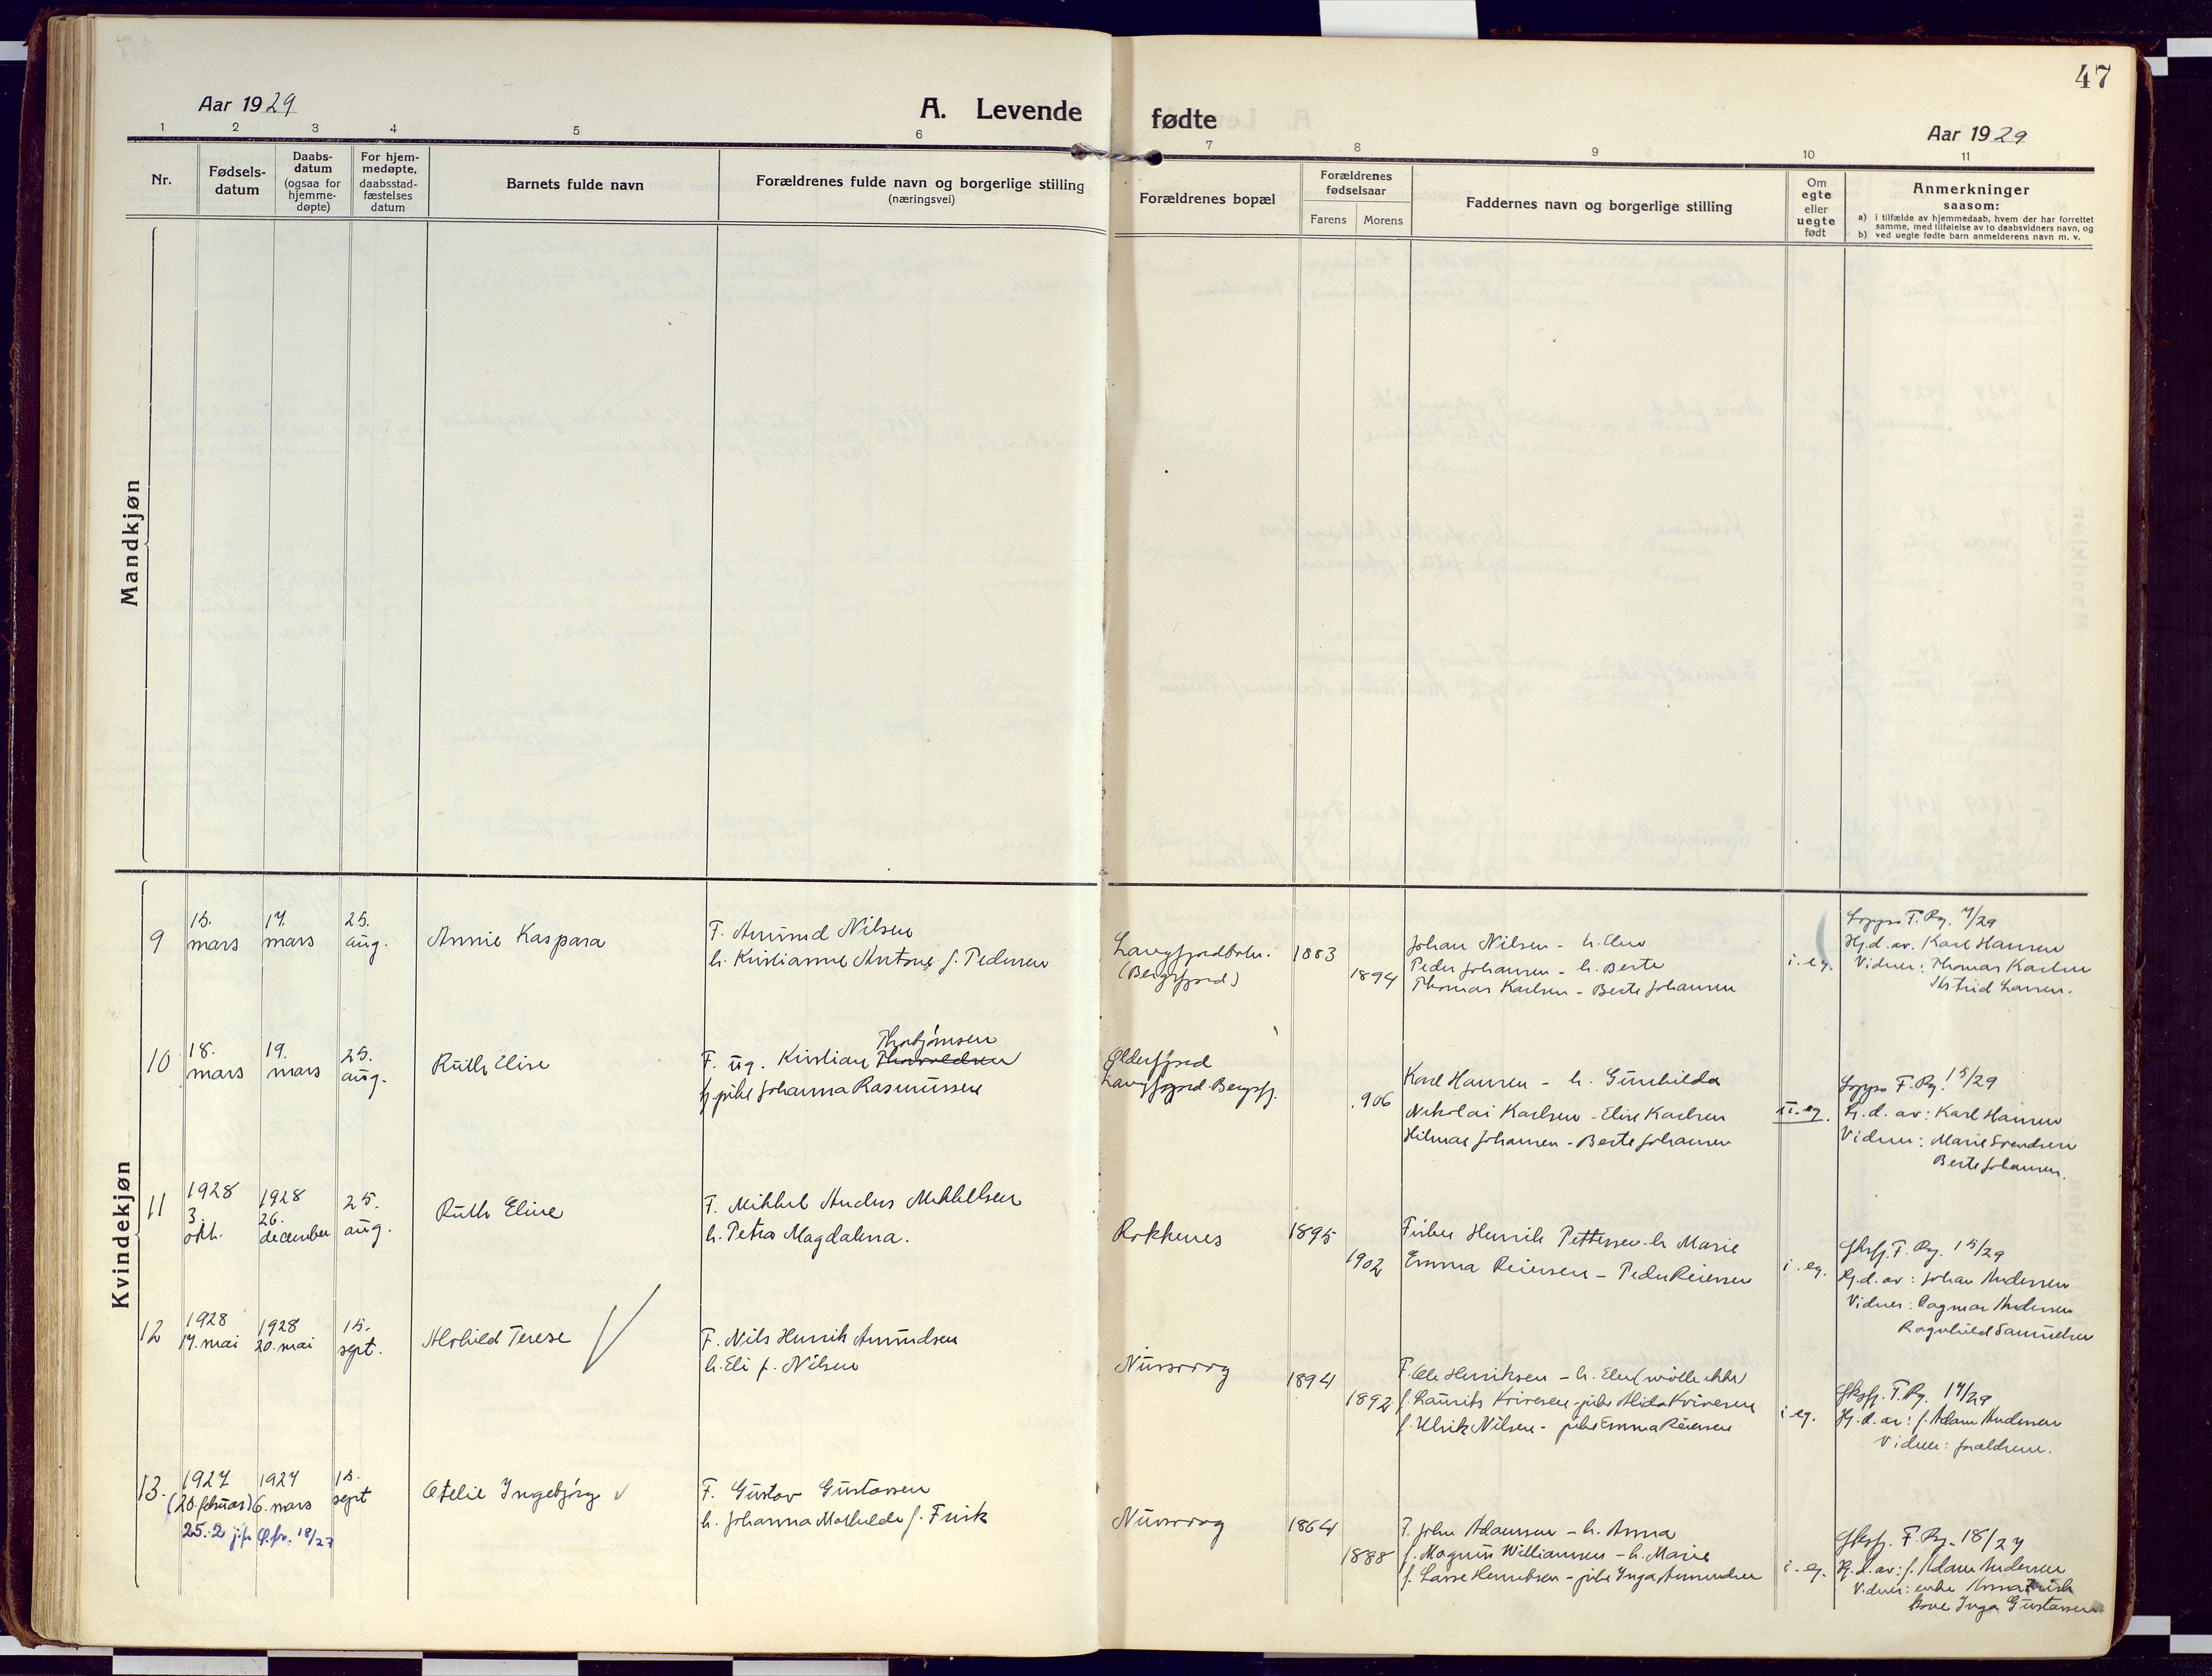 47
Aar 1929
A. Levende fødte
Aar 1929
1 2 3 4 5 6 7 8 9 10 11
Nr.
Fødsels-
datum
Daabs-
datum
(ogsaa for
hjemme-
døpte)
For hjem-
medøpte,
daabsstad-
fæstelses
datum
Barnets fulde navn
Forældrenes fulde navn og borgerlige stilling
(næringsvei)
Forældrenes bopæl
Forældrenes
fødselsaar
Farens Morens
Faddernes navn og borgerlige stilling
Om
egte
eller
uegte
født
Anmerkninger
saasom:
a) i tilfælde av hjemmedaab, hvem der har forrettet
samme, med tilføielse av to daabsvidners navn, og
b) ved uegte fødte barn anmelderens navn m. v.
Mandkjøn
Kvindekjøn
9
15.
mars
17.
mars
25.
aug.
Annie Kaspara
F. Amund Nilsen
h. Kristianne Antone f. Pedersen
Langfjordbotn.
(Bergsfjord)
1883
1894
Johan Nilsen - h. Elen
Peder Johansen - h. Berte
Thomas Karlsen - Berte Johansen
i. eg.
Loppa F. Rg. 7/29
Hj. d. av. Karl Hansen
Vidner: Thomas Karlsen
Astrid Larsen.
10
18.
mars
19.
mars
25.
aug.
Ruth Elise
Thorbjørnsen
F. ug. Kristian Thorvaldsen
pike Johanna Rasmussen
Olderfjord
Langfjord Bergsfj.
.906
Karl Hansen - h. Gunhilda
Nikolai Karlsen - Elise Karlsen
Hilmar Johansen - Berte Johansen
u. eg.
Loppa F. Rg. 15/29
Hj. d. av: Karl Hansen
Vidner: Marie Svendsen
Berte Johansen.
11
1928
3.
okt.
1928
26.
december
25.
aug.
Ruth Eline
F. Mikkel Anders Mikkelsen
h. Petra Magdalena.
Rokkenes
1895
1902
Fisker Henrik Pettersen h. Marie
Emma Reiersen - Peder Reiersen
i. eg.
F. Rg. 15/29
Hj. d. av: Johan Andersen
Vidner: Dagmar Andersen
Ragnhild Samuelsen
12
1928
17. mai
1928
20. mai
15.
sept.
Alvhild Terese
F. Nils Henrik Amundsen
h. Eli f. Nilsen
Nuvsvaag
1894
1892
F. Ole Henriksen - h. Elen
f. Laurits Kvivesen - pike Alida Kvivesen
f. Ulrik Nilsen - pike Emma Reiersen
i eg.
F. Rg. 17/29
Hj. d. av: f. Adam Andersen
Vidner: forældrene.
13.
1927
(20. februar)
25. 2
1927
6. mars
18/27
15.
sept
Otelie Ingebjørg
F. Gustav Gustavsen
h. Johanna Mathilde f. Frisk
Nuvsvaag
1864
1888
F. John Adamsen - h. Anna
f. Magnus Williamsen - h. Marie
f. Lasse Henriksen - pike Inga Amundsen
i. eg.
F. Rg. 18/27
Hj. d. av: f. Adam Andersen
Vidner: enke Anna Frisk
Inga Gustavsen